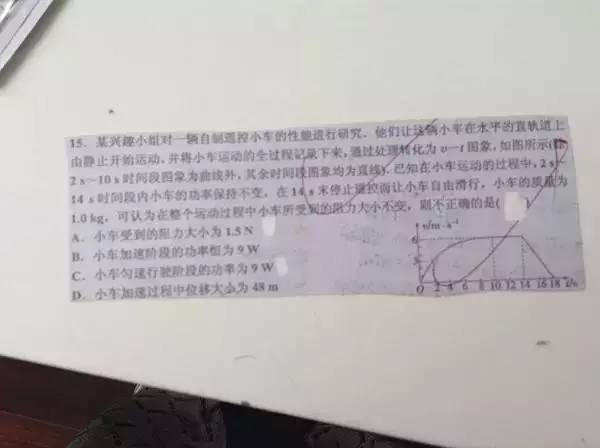 15. 某兴趣小组对一辆自制遥控小车的性能进行研究。他们让这辆小车在水平的直轨道上
由静止开始运动,并将小车运动的全过程记录下来,通过处理转化为 v—t 图象,如图所示(除
2 s~10 s 时间段图象为曲线外,其余时间段图象均为直线).已知在小车运动的过程中,2 s~
14 s 时间段内小车的功率保持不变,在 14 s 末停止遥控而让小车自由滑行,小车的质量为
1.0 kg,可认为在整个运动过程中小车所受到的阻力大小不变,则不正确的是( )
A. 小车受到的阻力大小为 1.5 N
B. 小车加速阶段的功率恒为 9 W
C. 小车匀速行驶阶段的功率为 9 W
D. 小车加速过程中位移大小为 48 m
v/m·s⁻¹
6
3
0 2 4 6 8 10 12 14 16 18 t/s